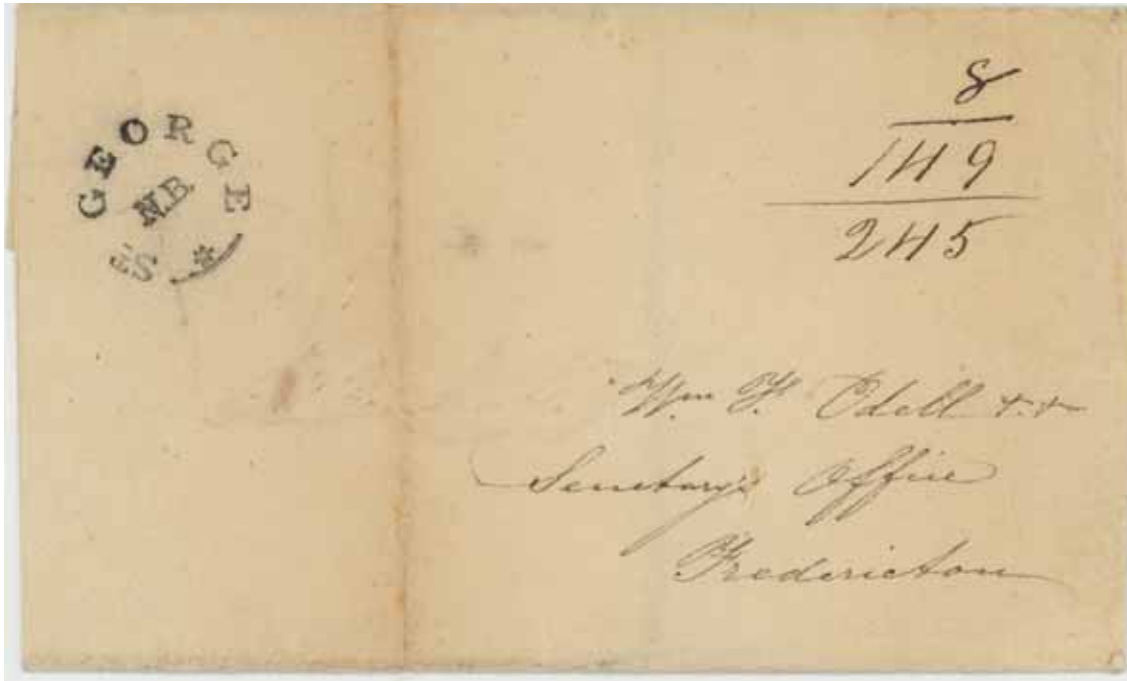 Sᵀ GEORGE
N.B.
8
149
245
Wm F. Odell
Secretary's Office
Fredericton